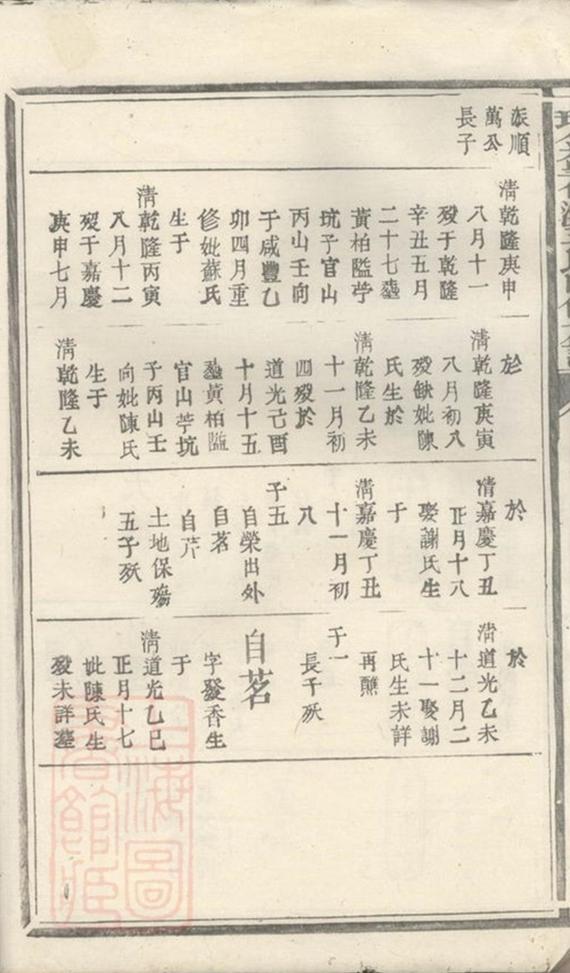 振順
萬公
長子
清乾隆庚申
八月十一
歿于乾隆
辛丑五月
二十七塟
黃柏隘苧
坑子官山
丙山壬向
于咸豐乙
卯四月重
修妣蘇氏
生于
清乾隆丙寅
八月十二
歿于嘉慶
庚申七月
於
清乾隆庚寅
八月初八
歿缺妣陳
氏生於
清乾隆乙未
十一月初
四歿於
道光己酉
十月十五
塟黃柏隘
官山苧坑
子丙山壬
向妣陳氏
生于
清乾隆乙未
於
清嘉慶丁丑
正月十八
娶謝氏生
于
清嘉慶丁丑
十一月初
八
子五
自榮出外
自茗
自芹
土地保殤
五子殀
於
清道光乙未
十二月二
十一娶謝
氏生未詳
再醮
子一
長子殀
自茗
字發香生
于
清道光乙巳
正月十七
妣陳氏生
歿未詳塟
上海圖
書館藏